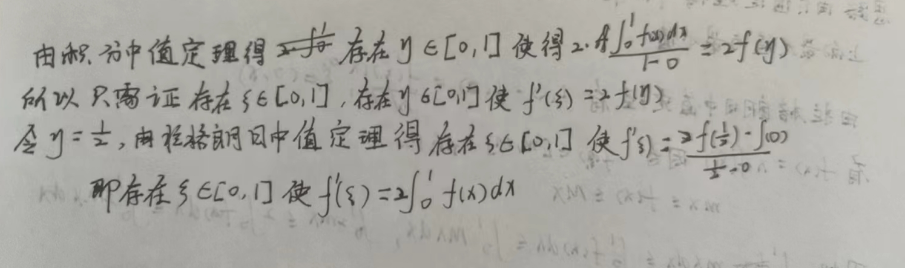 由积分中值定理得 存在y∈[0,1]使得2·\frac{∫_0^1 f(x)dx}{1-0}=2f(y)
所以只需证存在ξ∈[0,1],存在y∈[0,1]使f'(ξ)=2f(y)
令y=\frac{1}{2},由拉格朗日中值定理得存在ξ∈[0,1]使f'(ξ)=\frac{2f(\frac{1}{2})-f(0)}{\frac{1}{2}-0}
即存在ξ∈[0,1]使f'(ξ)=2∫_0^1 f(x)dx